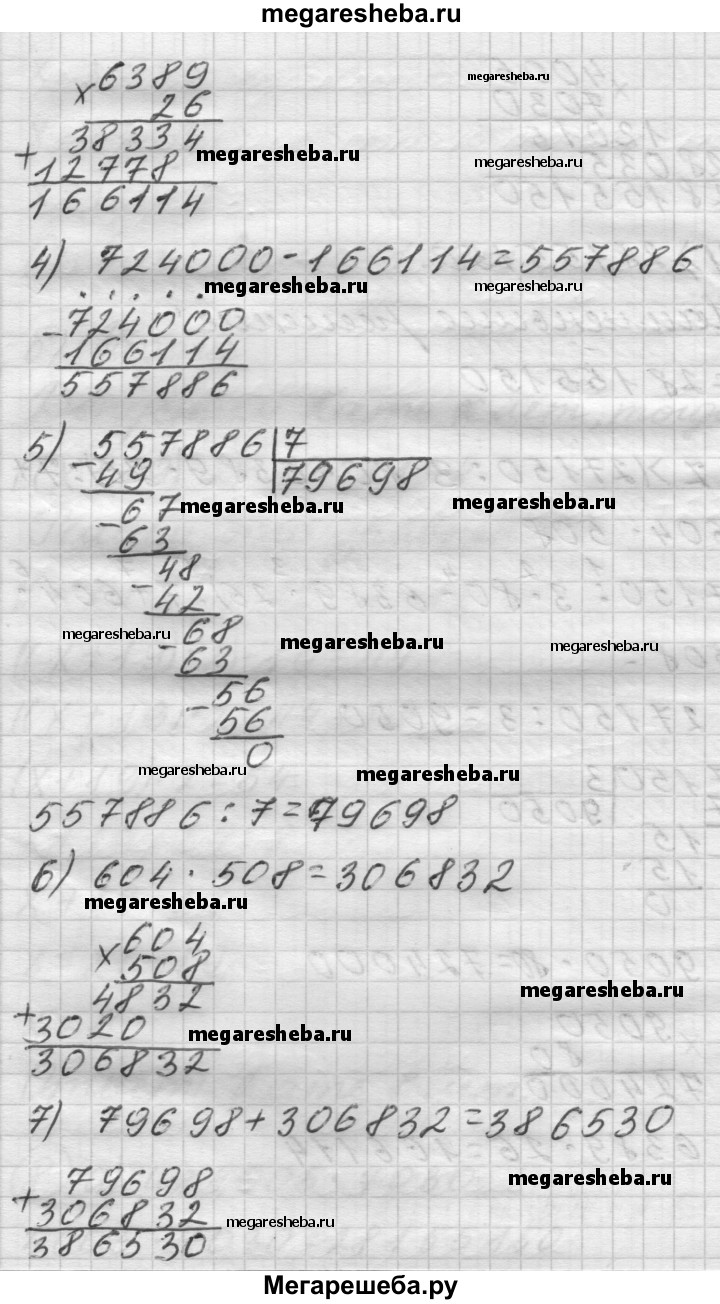 megaresheba.ru
× 6389
megaresheba.ru
26
38334
megaresheba.ru
megaresheba.ru
+ 12778
166114
4) 724000-166114=557886
megaresheba.ru
megaresheba.ru
- 724000
166114
557886
5) 557886 7
- 49 79698
67
megaresheba.ru
megaresheba.ru
- 63
48
- 42
megaresheba.ru
- 68
megaresheba.ru
megaresheba.ru
63
56
- 56
0
megaresheba.ru
megaresheba.ru
557886:7=79698
6) 604·508=306832
megaresheba.ru
× 604
508
4832
megaresheba.ru
+ 3020
megaresheba.ru
306832
7) 79698+306832=386530
+ 79698
megaresheba.ru
306832
megaresheba.ru
386530
Мегарешеба.ру